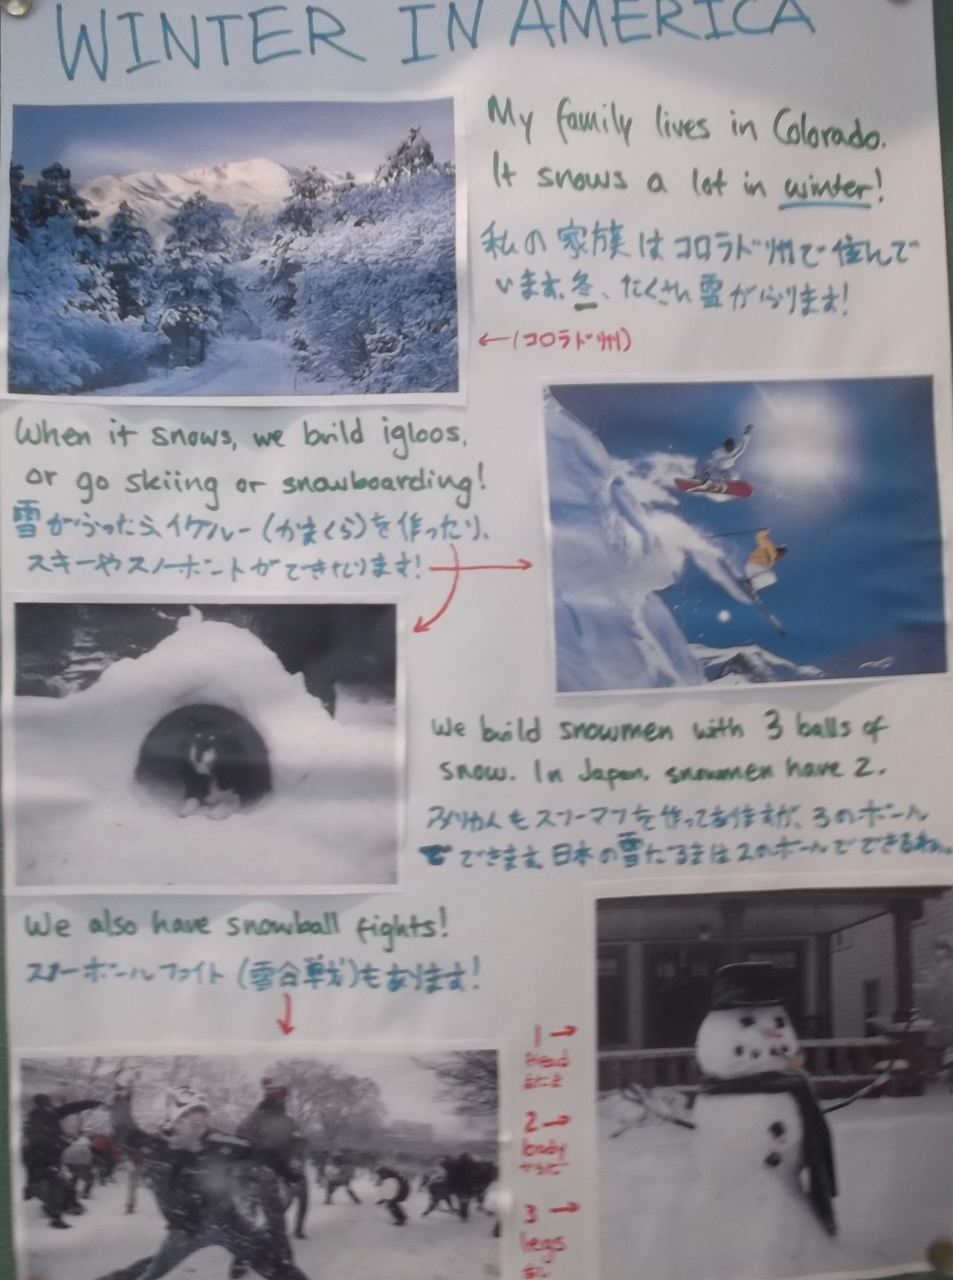 WINTER IN AMERICA
My family lives in Colorado.
It snows a lot in winter!
私の家族はコロラド州で住んで
います。冬、たくさん雪がふります!
←(コロラド州)
When it snows, we build igloos,
or go skiing or snowboarding!
雪がふったら、イグルー(かまくら)を作ったり、
スキーやスノーボードができたります!
We build snowmen with 3 balls of
snow. In Japan, snowmen have 2.
もスノーマンを作って 3のボール
でできます。日本の雪だるまは2のボールでできるね。
We also have snowball fights!
スノーボールファイト(雪合戦)もあります!
1→
Head
2→
body
3→
legs